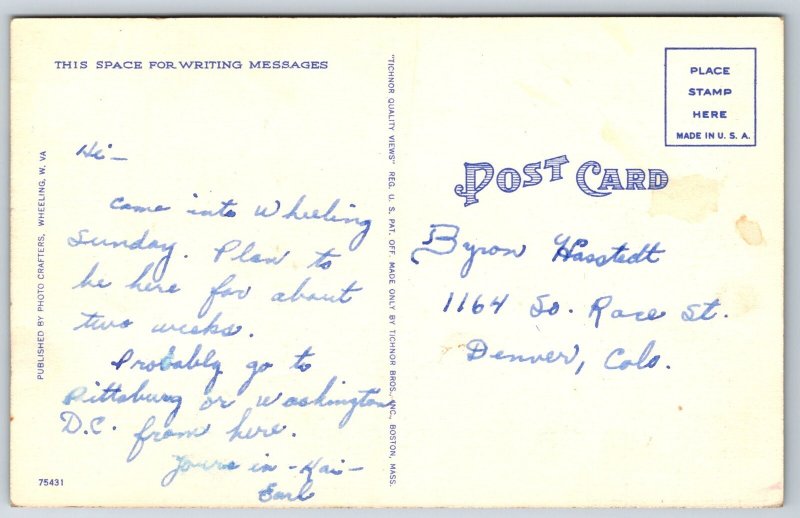 THIS SPACE FOR WRITING MESSAGES
Hi-
Came into Wheeling
Sunday. Plan to
be here for about
two weeks.
Probably go to
Pittsburg or Washington
D.C. from here.
Yours in -Kai-
Earl
PUBLISHED BY PHOTO CRAFTERS, WHEELING, W. VA
75431
"TICHNOR QUALITY VIEWS" REG. U. S. PAT. OFF. MADE ONLY BY TICHNOR BROS., INC., BOSTON, MASS.
PLACE
STAMP
HERE
MADE IN U. S. A.
POST CARD
Byron Hasstedt
1164 So. Race St.
Denver, Colo.